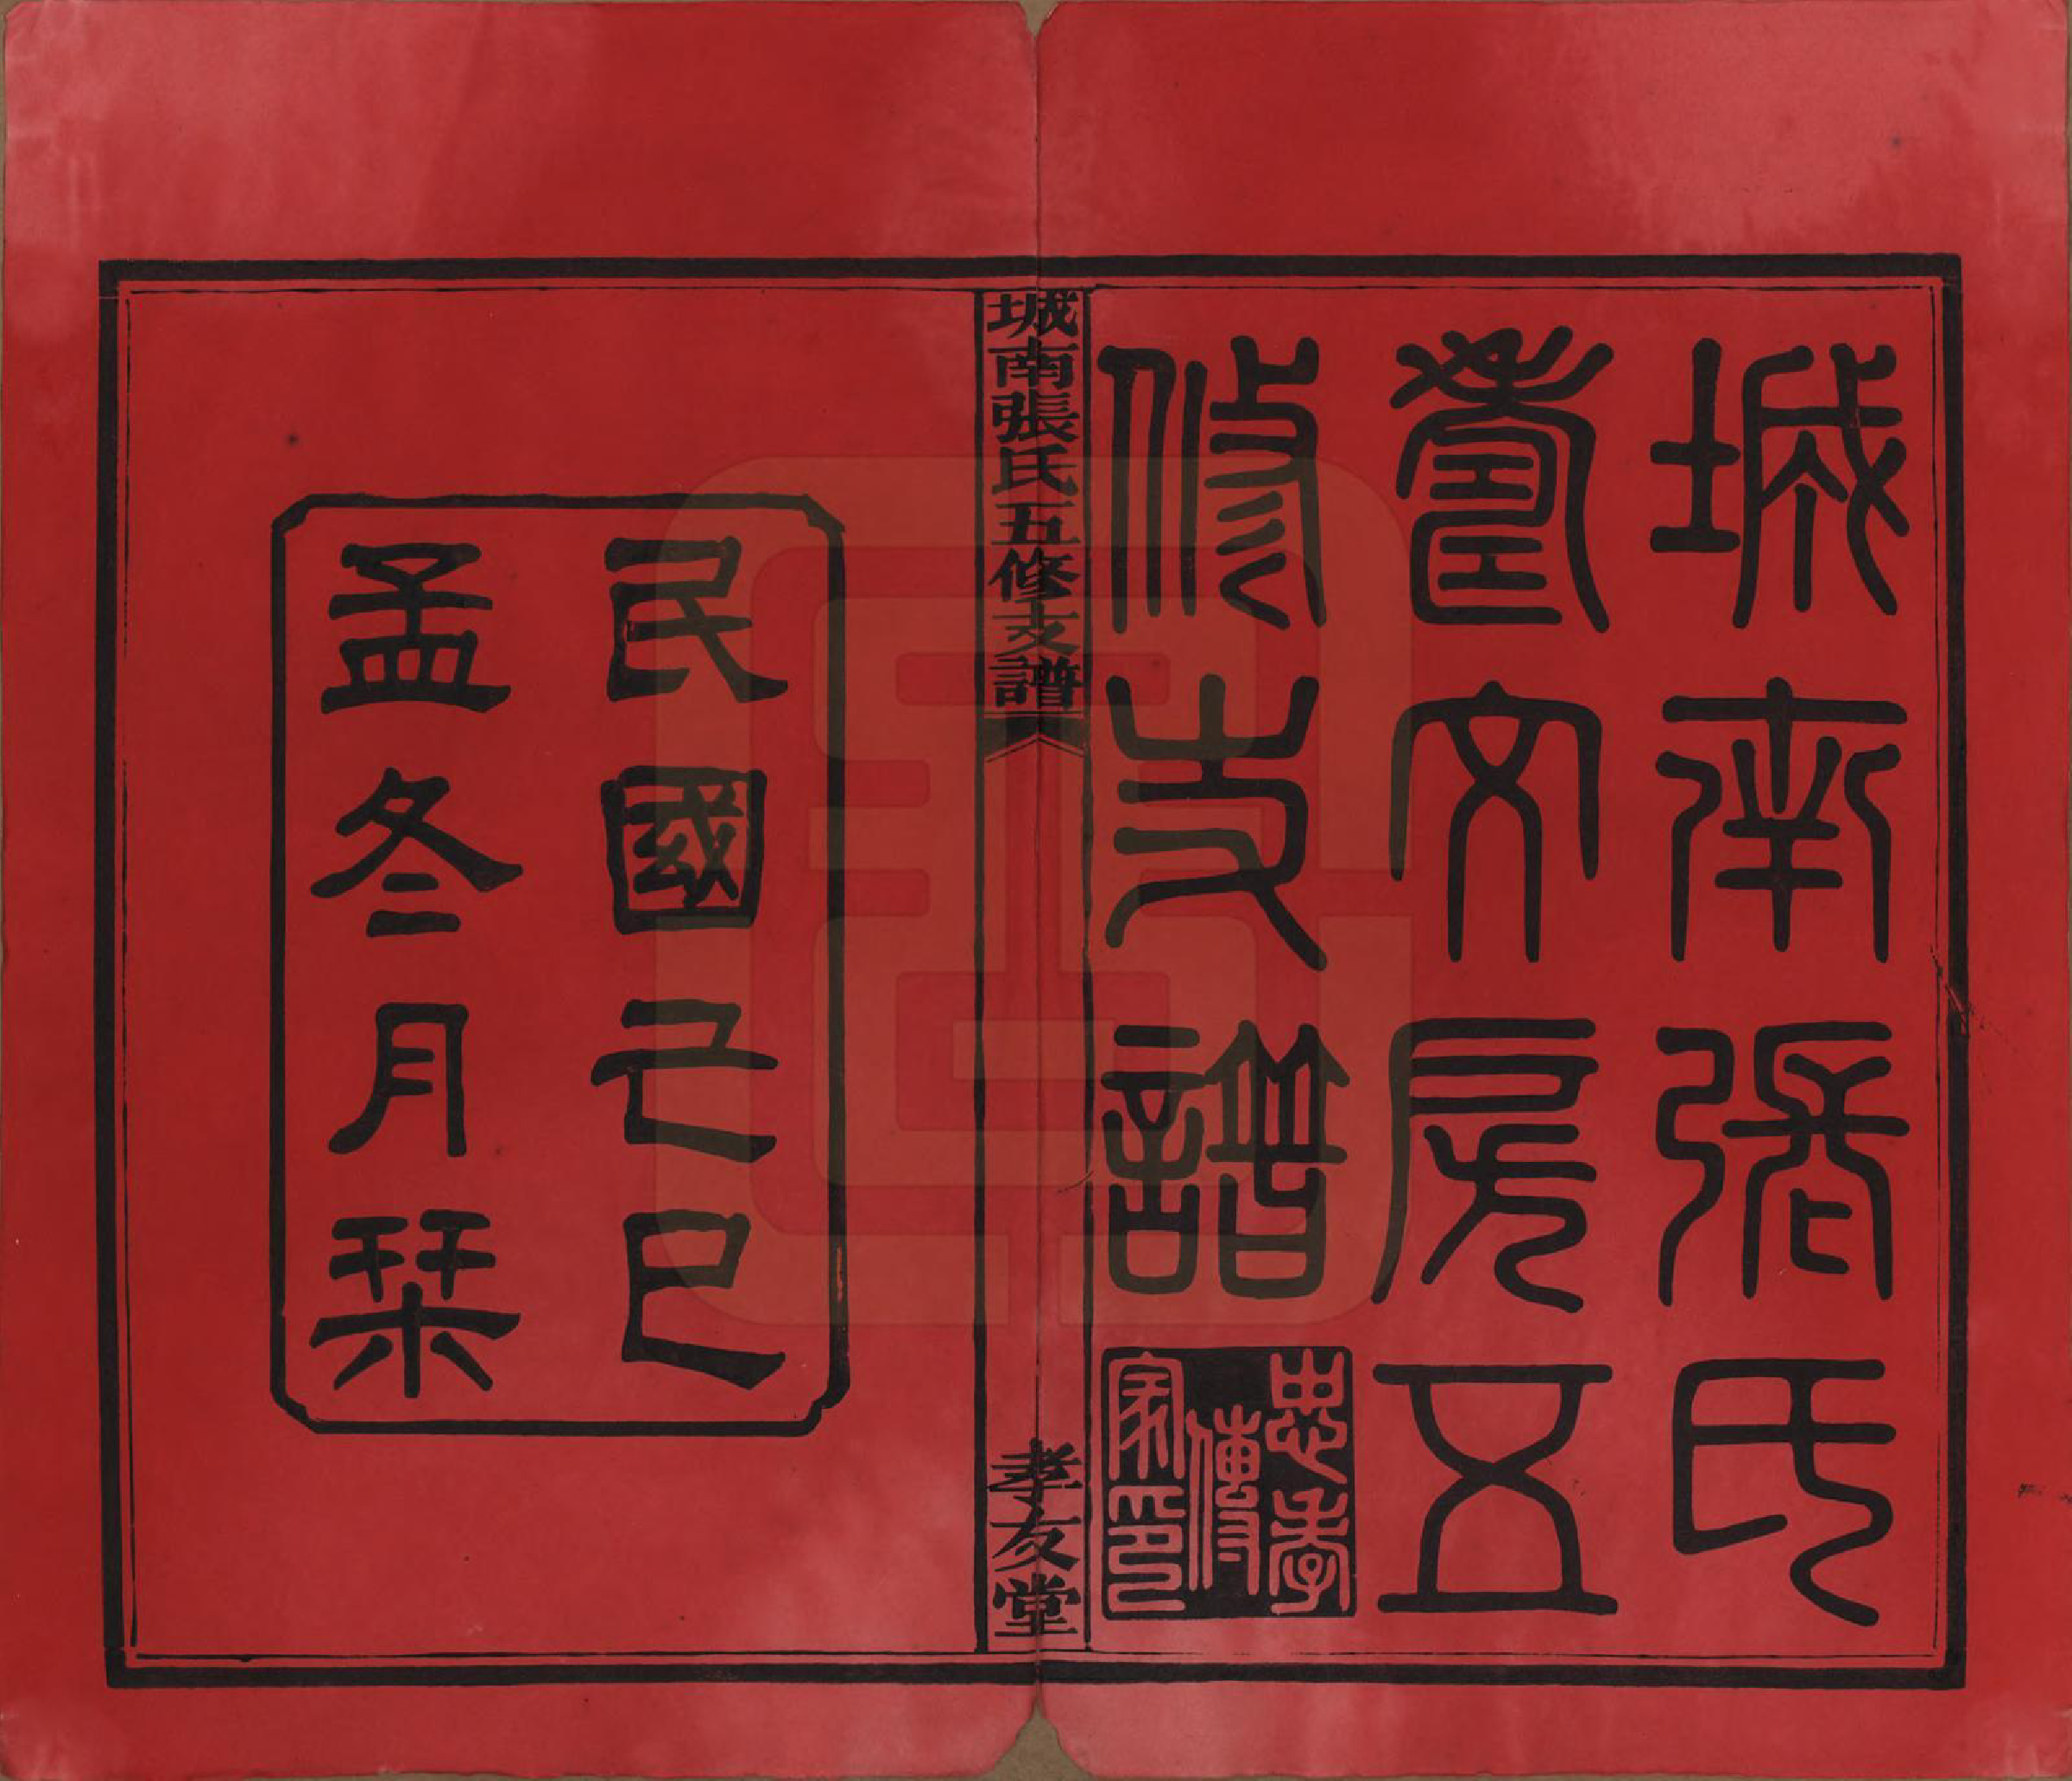 城南張氏
文房五
修支譜
忠孝
傳
家印
城南張氏五修支譜
孝友堂
民國己巳
孟冬月栞